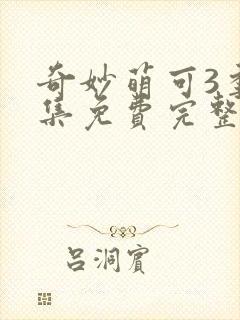 奇妙萌可3全
集免费完整
吕洞宾